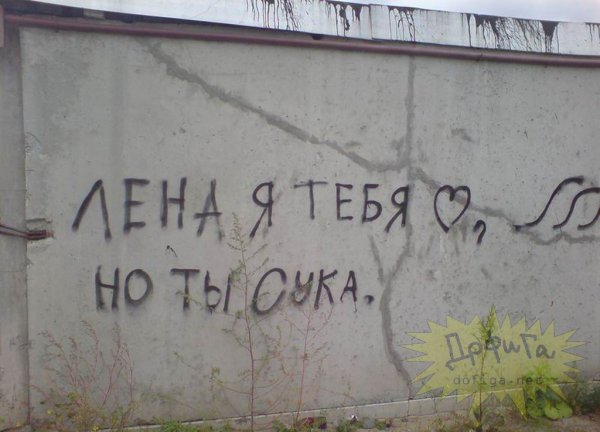 ЛЕНА Я ТЕБЯ ♡,
НО ТЫ СУКА.
ДОФИГА
dofiga.net